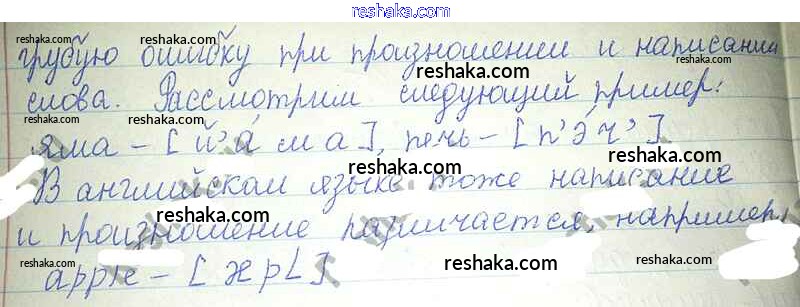 reshaka.com
грубую ошибку при произношении и написании
reshaka.com reshaka.com reshaka.com
слова. Рассмотрим следующий пример:
reshaka.com reshaka.com
яма – [й'а́ м а], печь – [п' э́ ч']
reshaka.com reshaka.com
В английском языке тоже написание
reshaka.com reshaka.com reshaka.com
и произношение различается, например,
reshaka.com reshaka.com
apple – [æpL]
reshaka.com
reshaka.com